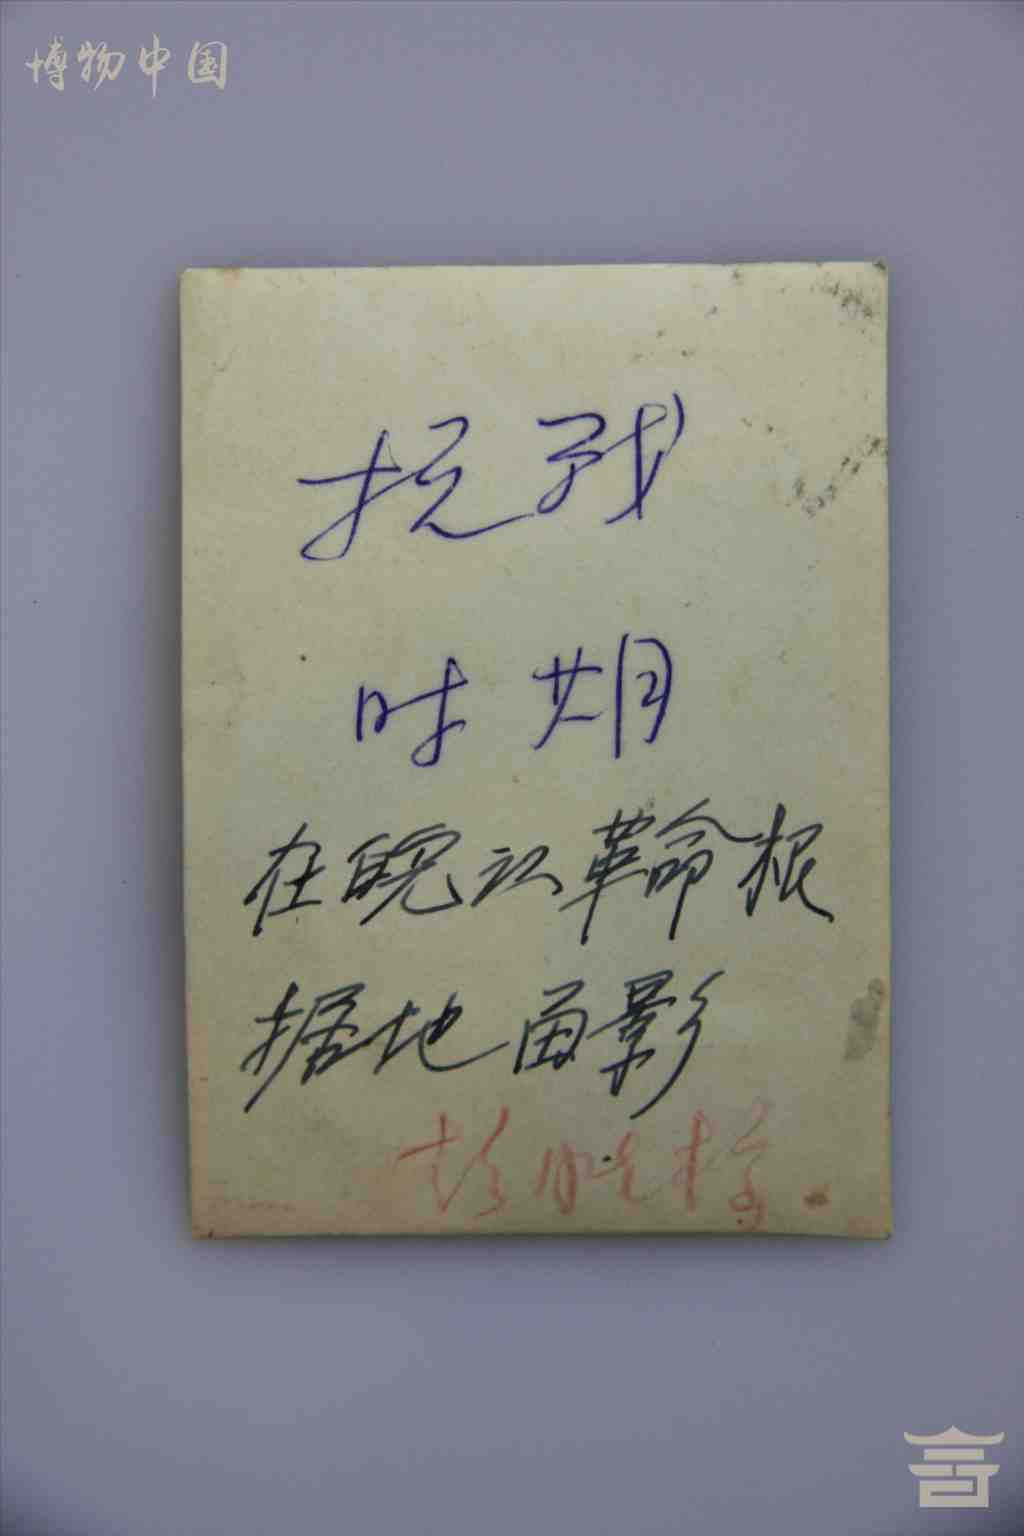 博物中国
抗战
时期
在皖江革命根
据地留影
彭胜标